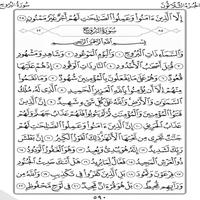 الجزء الثلاثون سورة البروج
إِلَّا ٱلَّذِينَ ءَامَنُوا۟ وَعَمِلُوا۟ ٱلصَّٰلِحَٰتِ لَهُمْ أَجْرٌ غَيْرُ مَمْنُونٍۭ ٢٥
سُورَةُ البُرُوجِ
بِسْمِ ٱللَّهِ ٱلرَّحْمَٰنِ ٱلرَّحِيمِ
وَٱلسَّمَآءِ ذَاتِ ٱلْبُرُوجِ ١ وَٱلْيَوْمِ ٱلْمَوْعُودِ ٢ وَشَاهِدٍ وَمَشْهُودٍ
٣ قُتِلَ أَصْحَٰبُ ٱلْأُخْدُودِ ٤ ٱلنَّارِ ذَاتِ ٱلْوَقُودِ ٥ إِذْ هُمْ عَلَيْهَا
قُعُودٌ ٦ وَهُمْ عَلَىٰ مَا يَفْعَلُونَ بِٱلْمُؤْمِنِينَ شُهُودٌ ٧ وَمَا نَقَمُوا۟
مِنْهُمْ إِلَّآ أَن يُؤْمِنُوا۟ بِٱللَّهِ ٱلْعَزِيزِ ٱلْحَمِيدِ ٨ ٱلَّذِى لَهُۥ مُلْكُ
ٱلسَّمَٰوَٰتِ وَٱلْأَرْضِ وَٱللَّهُ عَلَىٰ كُلِّ شَىْءٍ شَهِيدٌ ٩ إِنَّ ٱلَّذِينَ
فَتَنُوا۟ ٱلْمُؤْمِنِينَ وَٱلْمُؤْمِنَٰتِ ثُمَّ لَمْ يَتُوبُوا۟ فَلَهُمْ عَذَابُ جَهَنَّمَ وَلَهُمْ
عَذَابُ ٱلْحَرِيقِ ١٠ إِنَّ ٱلَّذِينَ ءَامَنُوا۟ وَعَمِلُوا۟ ٱلصَّٰلِحَٰتِ لَهُمْ
جَنَّٰتٌ تَجْرِى مِن تَحْتِهَا ٱلْأَنْهَٰرُ ذَٰلِكَ ٱلْفَوْزُ ٱلْكَبِيرُ ١١ إِنَّ بَطْشَ
رَبِّكَ لَشَدِيدٌ ١٢ إِنَّهُۥ هُوَ يُبْدِئُ وَيُعِيدُ ١٣ وَهُوَ ٱلْغَفُورُ ٱلْوَدُودُ ١٤
ذُو ٱلْعَرْشِ ٱلْمَجِيدُ ١٥ فَعَّالٌ لِّمَا يُرِيدُ ١٦ هَلْ أَتَىٰكَ حَدِيثُ ٱلْجُنُودِ ١٧
فِرْعَوْنَ وَثَمُودَ ١٨ بَلِ ٱلَّذِينَ كَفَرُوا۟ فِى تَكْذِيبٍ ١٩ وَٱللَّهُ مِن
وَرَآئِهِم مُّحِيطٌۢ ٢٠ بَلْ هُوَ قُرْءَانٌ مَّجِيدٌ ٢١ فِى لَوْحٍ مَّحْفُوظٍۭ ٢٢
٥٩٠